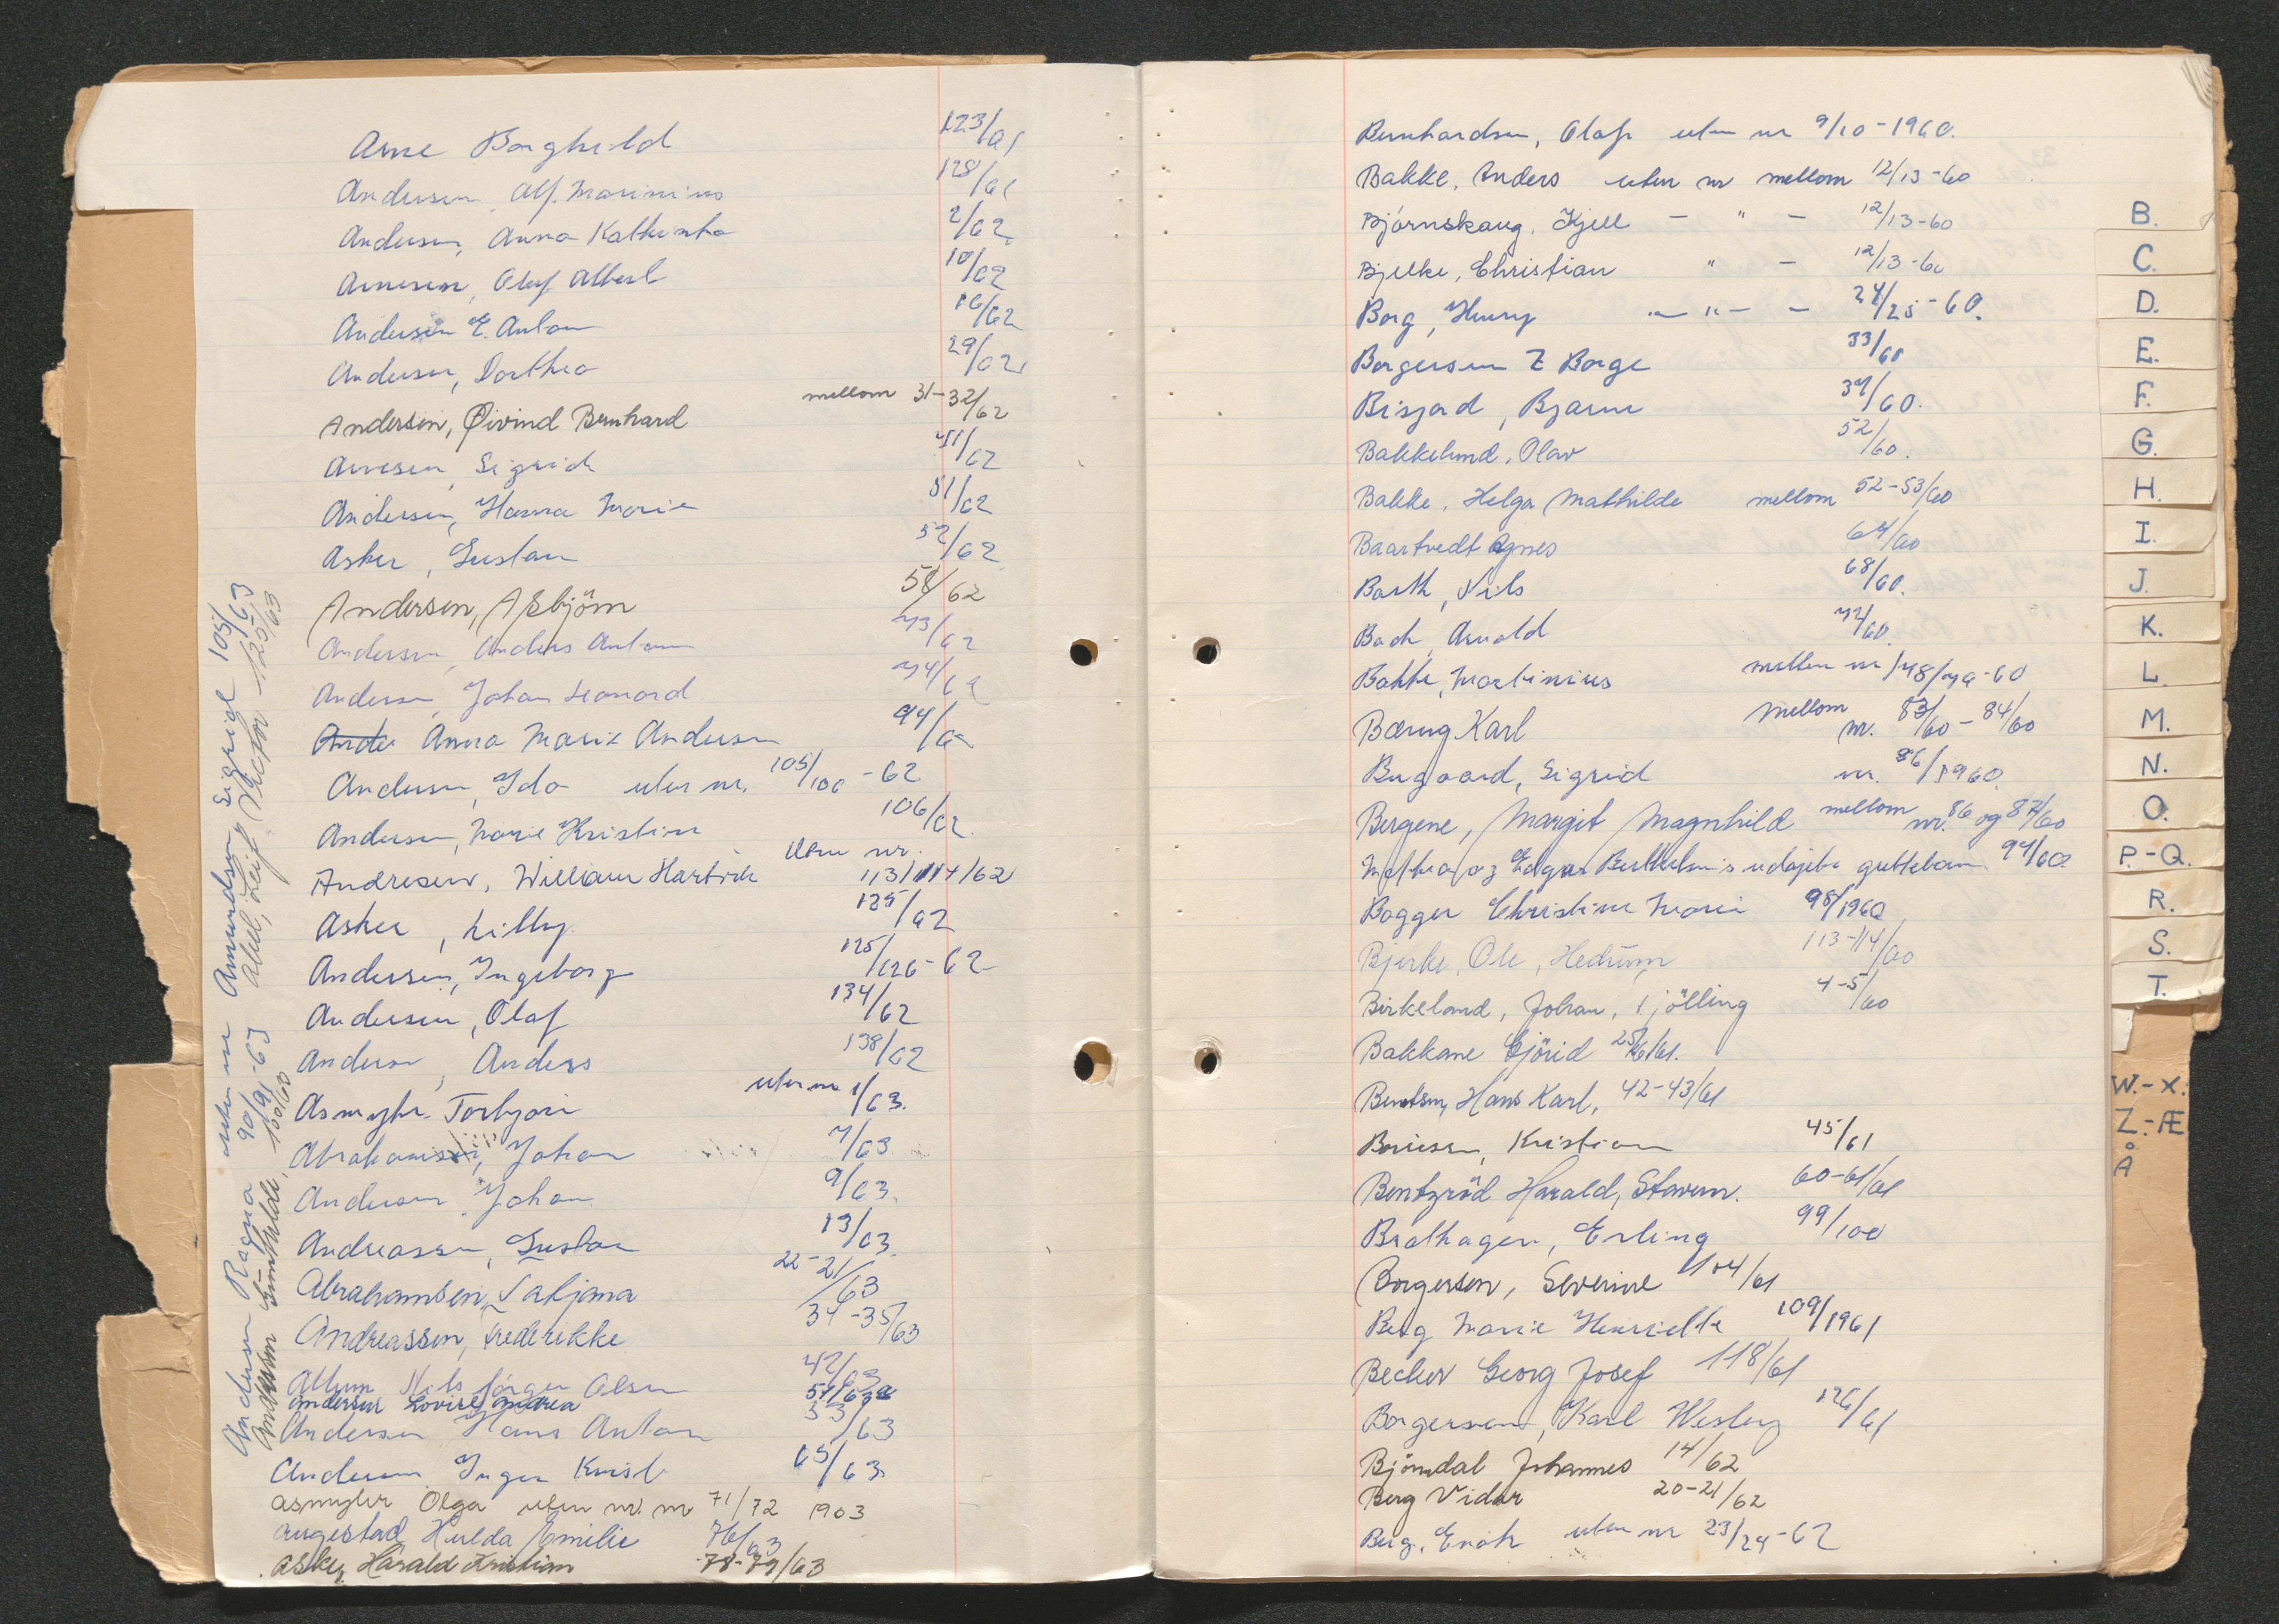 Arne Borghild 123/61
Andersen, Alf. Marinius 128/61
Andersen, Anna Kathinka 2/62
Arnesen, Olaf Albert 10/62
Andersen E. Anton 16/62
Andersen, Dorthea 29/62
Andersen, Øivind Bernhard mellom 31-32/62
Arnesen, Sigrid 41/62
Andersen, Hanna Marie 51/62
Asker, Gustav 52/62
Andersen, Asbjörn 58/62
Andersen, Anders Anton 73/62
Andersen, Johan Leonard 74/62
Ande Anna Marie Andersen 94/62
Andersen, Ida uten nr. 105/106-62
Andersen, Marie Kristine 106/62
Andresen, William Hartvik uten nr. 113/114/62
Asker, Lilly 125/62
Andersen, Ingeborg 125/126-62
Andersen, Olaf 134/62
Andersen, Anders 138/62
Asmyhr Torbjørn uten nr 1/63.
Abrahamsen, Johan 7/63
Andersen, Johan 9/63.
Andreassen, Gustav 13/63.
Abrahamsen, Tatjana 22-21/63
Andreassen, Frederikke 34-35/63
Allum Nils Jörgen Olsen 42/63
Andersen Lovise Andrea 51/63
Andersen Hans Anton 53/63
Andersen Inger Krist 65/63
Asmyhr Olga uten nr. nr 71/72 1963
Augestad, Hulda Emilie 76/63
Asker, Harald Kristian 78-79/63
Andersen Ragna uten nr 90/91-63 Amundsen Sigrid 105/63
Andersen Gunhilde, 100/60 Abel, Leif Victor 125/63
Bernhardsen, Olaf uten nr 9/10-1960.
Bakke, Anders uten nr mellom 12/13-60
Bjørnskaug, Kjell - " - 12/13-60
Bjelke, Christian " - 12/13-60
Borg, Henry - " - - 24/25-60.
Borgersen Z Borge 33/60
Bisjord, Bjarne 39/60.
Bakkelund, Olav 52/60.
Bakke, Helga Mathilde mellom 52-53/60
Baartvedt Agnes 64/60
Barth, Nils 68/60.
Bach, Arnold 72/60.
Bakke, Martinius mellem nr 78/79-60
Bærug Karl mellom nr. 83/60-84/60
Bugaard, Sigrid nr. 86/1960.
Bergene, Margit Magnhild mellom nr. 86 og 87/60
Mathea og Edgar Berthelsen's udøpte guttebarn 94/60
Bogger Christine Marie 98/1960
Bjerke, Ole, Hedrum 113-114/60
Birkeland, Johan, Tjölling 4-5/60
Bakkane Gjörid 25/26/61.
Bentsen, Hans Karl, 42-43/61
Boriesen, Kristian 45/61
Bentzröd Harald, Stavern. 60-61/61
Brathagen, Erling 99/100
Borgersen, Severine 104/61
Berg Marie Henriette 109/1961
Becker Georg Josef 118/61
Borgersen, Karl Wesley 126/61
Björndal Johannes 14/62
Berg Vidar 20-21/62
Berg, Enok uten nr 23/24-62
B.
C.
D.
E.
F.
G.
H.
I.
J.
K.
L.
M.
N.
O.
P.-Q.
R.
S.
T.
W.-X.
Z.-Æ
Å